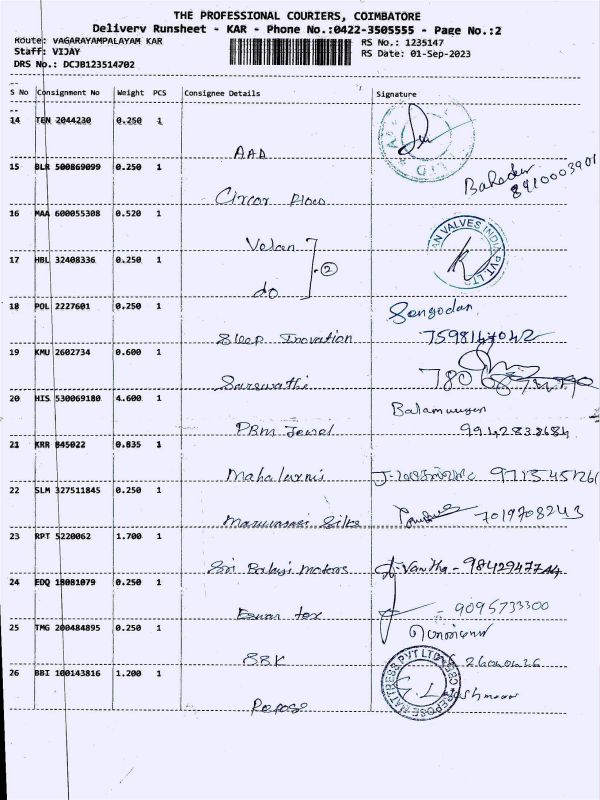 THE PROFESSIONAL COURIERS, COIMBATORE
Delivery Runsheet - KAR - Phone No.:0422-3505555 - Page No.:2
Route: VAGARAYAMPALAYAM KAR
RS No.: 1235147
Staff: VIJAY
RS Date: 01-Sep-2023
DRS No.: DCJB123514702
S No Consignment No Weight PCS Consignee Details Signature
14 TEN 2044230 0.250 1
AAA
15 BLR 500869099 0.250 1
Bahadur
8910003901
Circor Flow
16 MAA 600055308 0.520 1
Velan
VALVES INDIA PVT. LTD
17 HBL 32408336 0.250 1
2
do
18 POL 2227601 0.250 1
Sengodan
Sleep Inovation
7598147042
19 KMU 2602734 0.600 1
Saraswathi
780
20 HIS 530069180 4.600 1
Balamurugan
PBM Jewel
9942833684
21 KRR 845022 0.835 1
Mahalaxmi
22 SLM 327511845 0.250 1
Silks
7019708243
23 RPT 5220062 1.700 1
Sri Balaji Motors
Vantha - 9842947744
24 EDQ 18081079 0.250 1
Eswar tex
- 9095733300
25 TMG 200484895 0.250 1
BBK
26 BBI 100143816 1.200 1
REPOSE MATTRESS PVT LTD
Repose